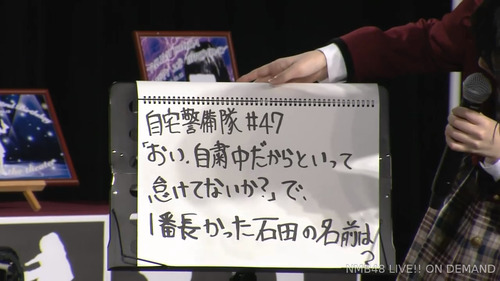 自宅警備隊 #47
「おい、自粛中だからといって
怠けてないか？」で、
1番長かった石田の名前は？
NMB48 LIVE!! ON DEMAND